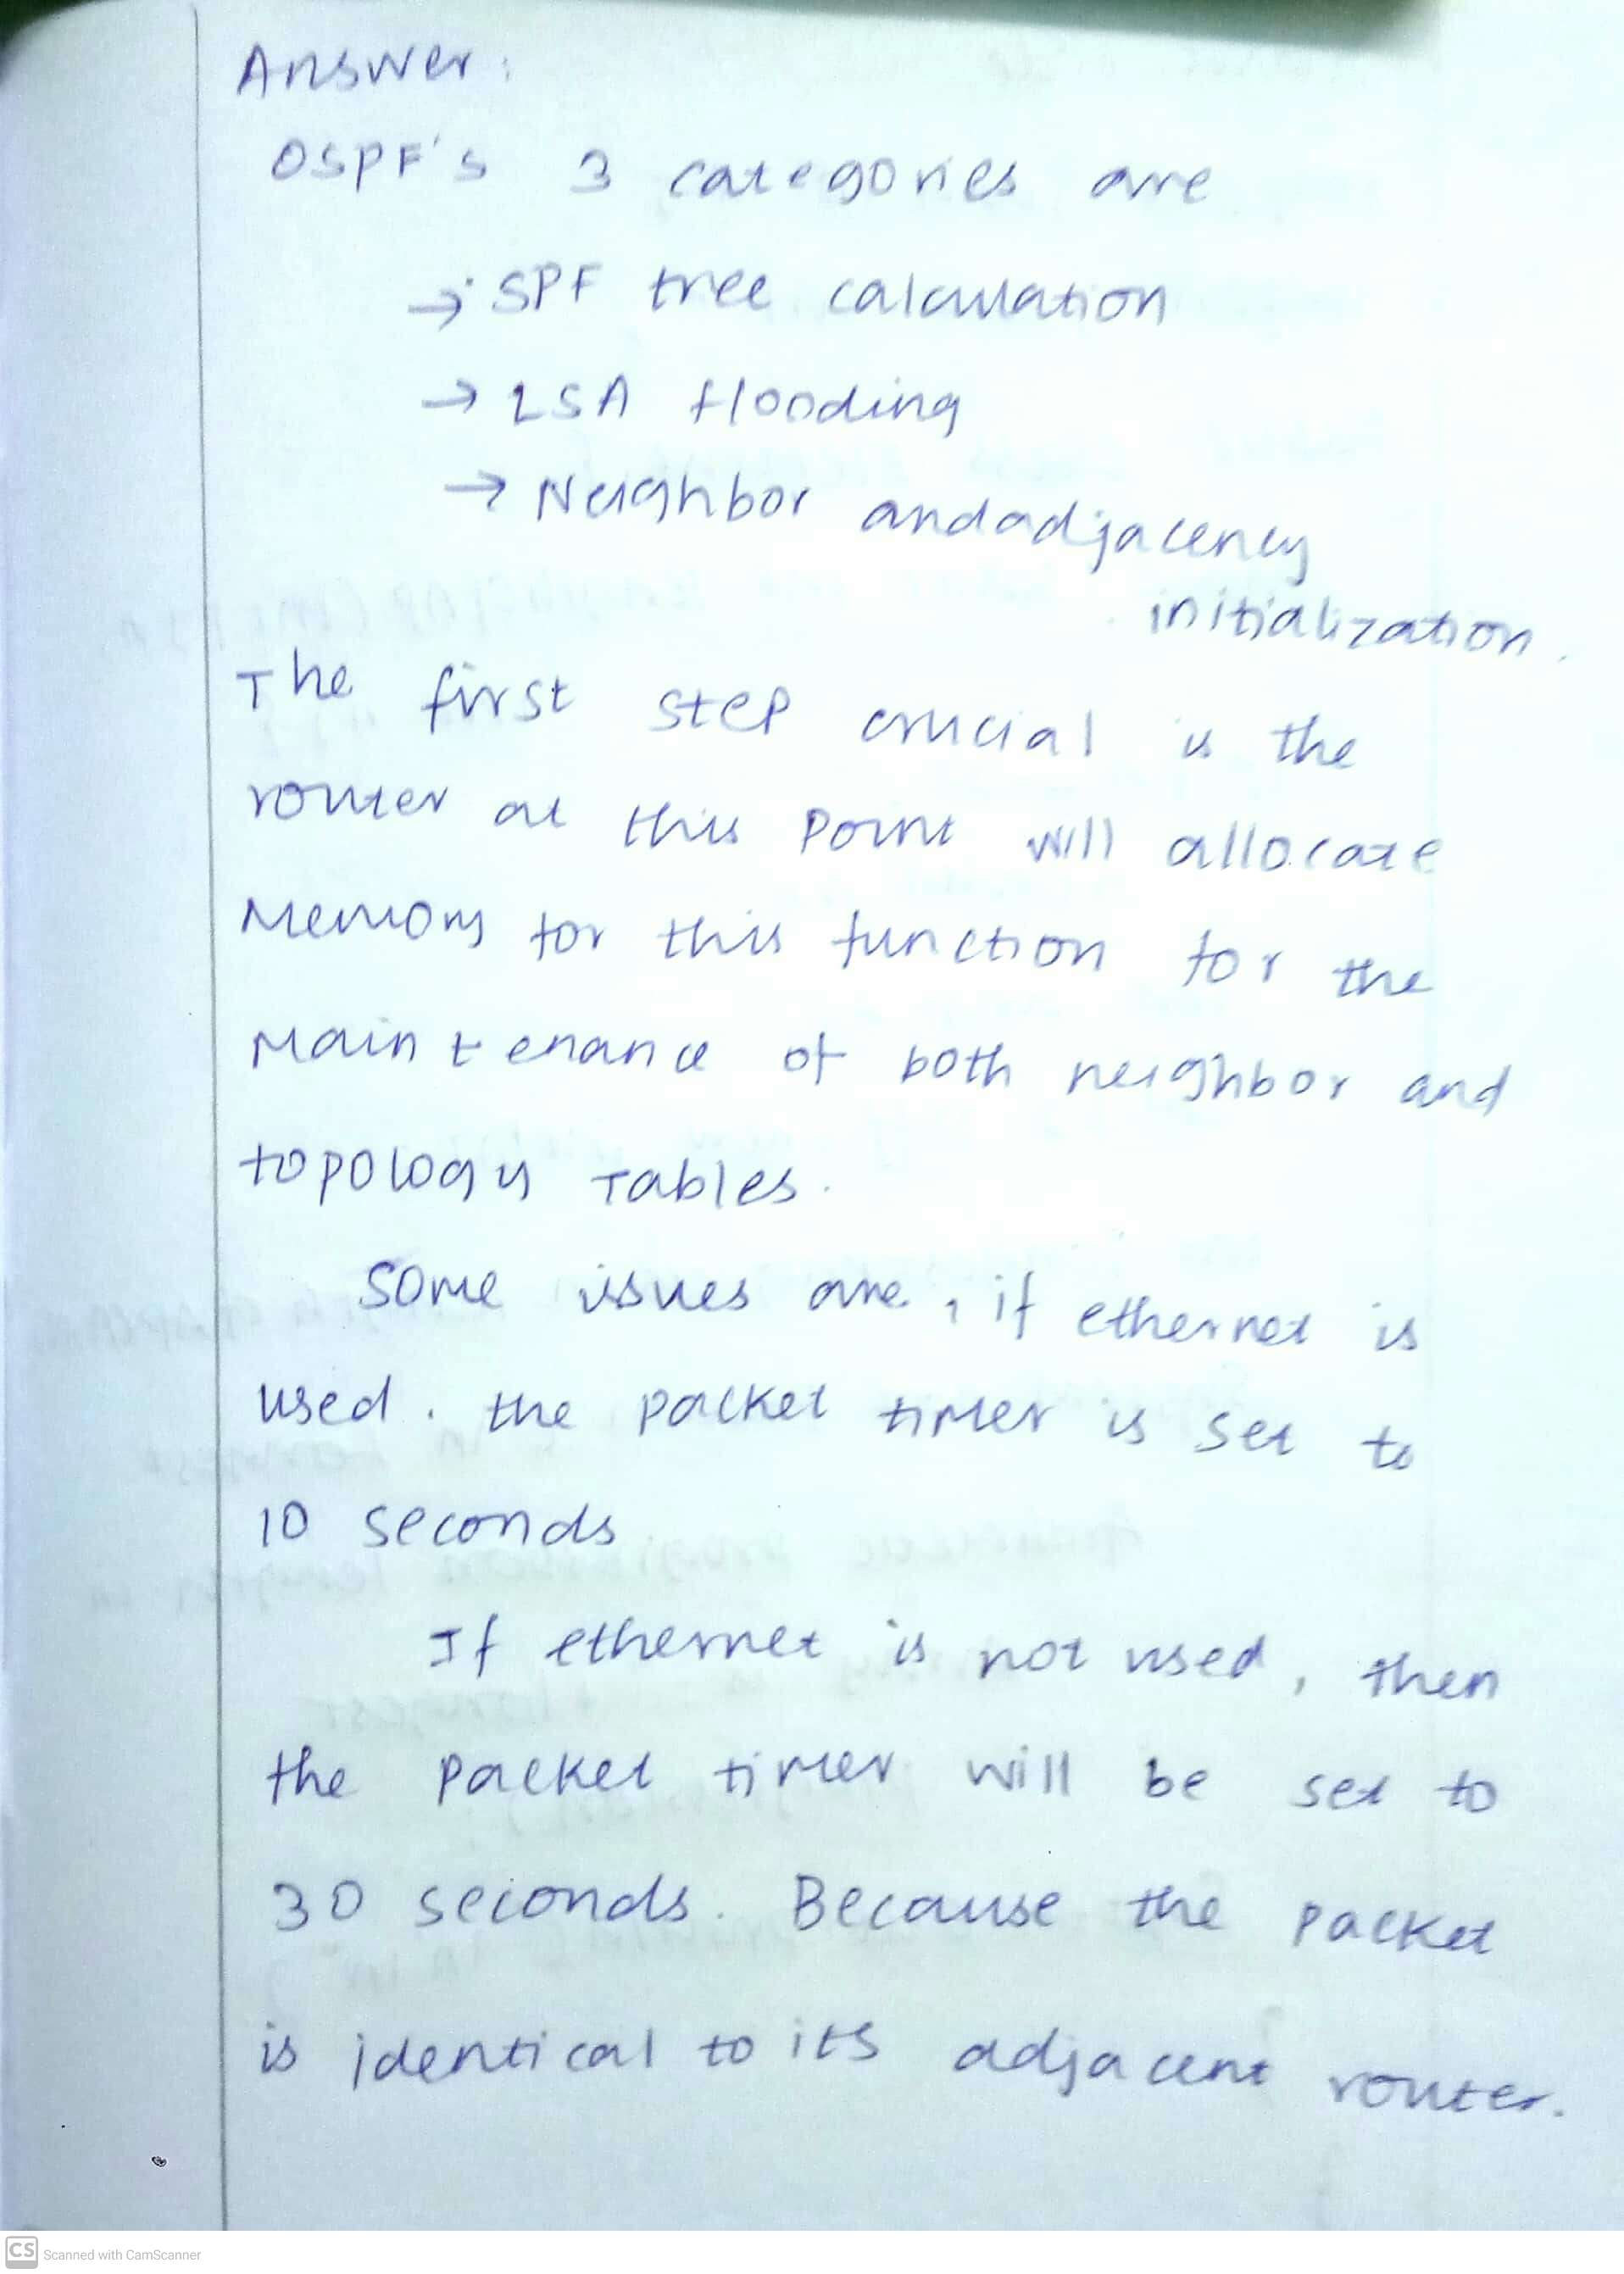 Answer:
OSPF's 3 categories are
→ SPF tree calculation
→ LSA flooding
→ Neighbor and adjacency
initialization.
The first step crucial is the
router at this point will allocate
Memory for this function for the
Maintenance of both neighbor and
topology Tables.
Some issues are, if ethernet is
used. the packet timer is set to
10 seconds
If ethernet is not used, then
the packet timer will be set to
30 seconds. Because the packet
is identical to its adjacent router.
CS Scanned with CamScanner